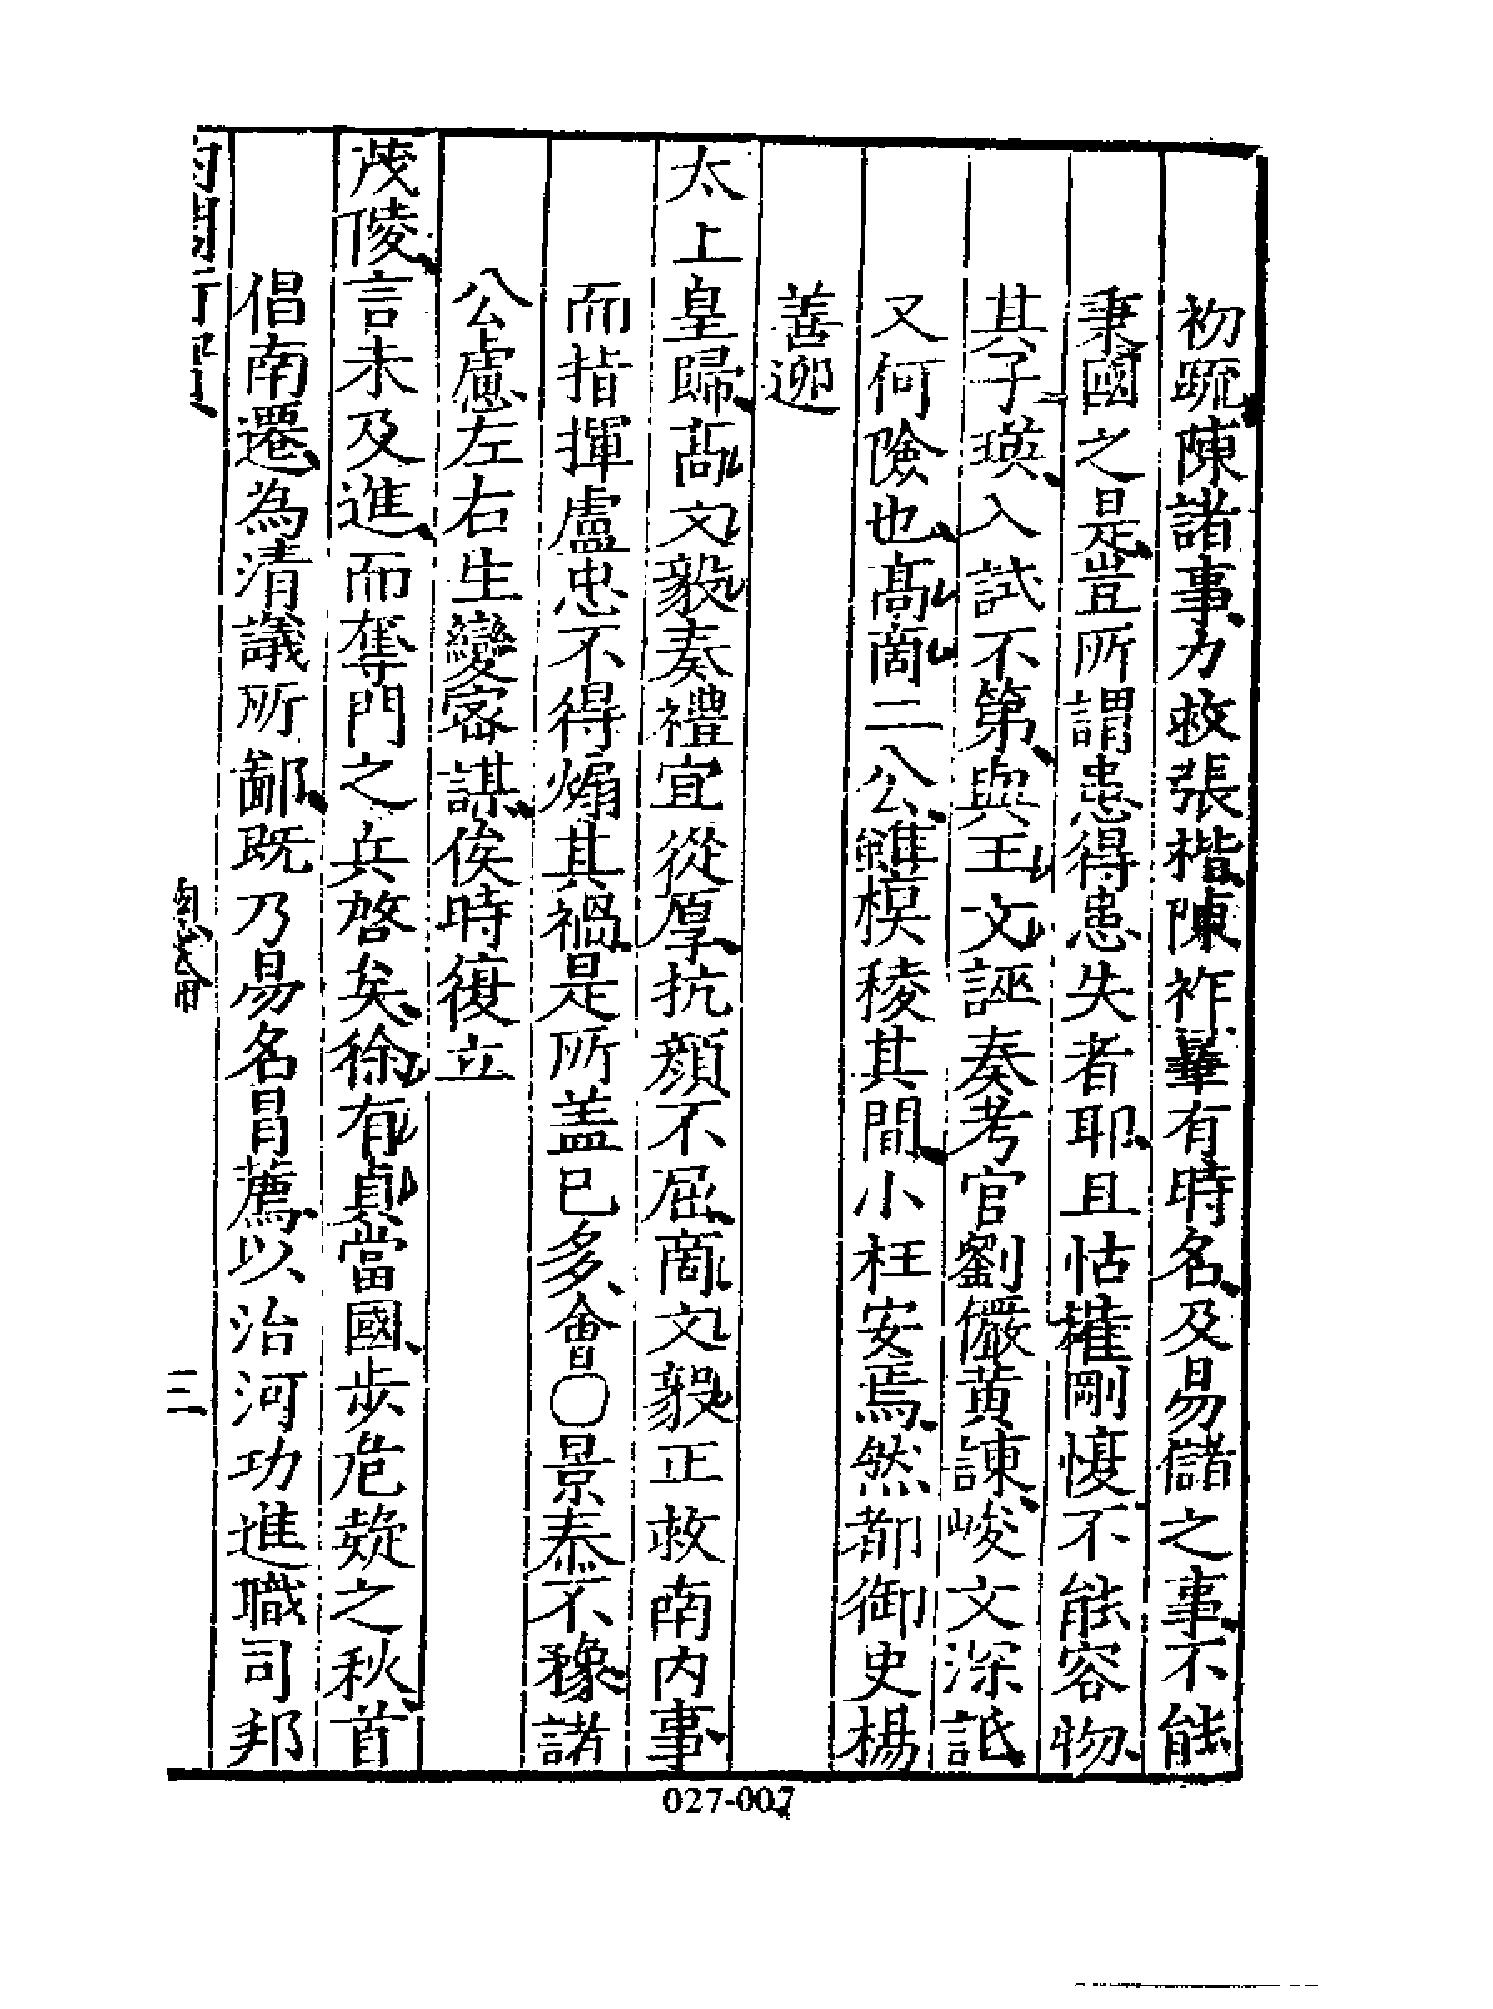 初疏陳諸事力救張楷陳祚畢有時名及易儲之事不能
秉國之是豈所謂患得患失者耶且怙權剛愎不能容物
其子瑛入試不第與王文誣奏考官劉儼黃諫峻文深詆
又何險也高商二公雖模稜其間小枉安焉然都御史楊
善迎
太上皇歸高文毅奏禮宜從厚抗顏不屈商文毅正救南內事
而指揮盧忠不得煽其禍是所盖已多會○景泰不豫諸
公慮左右生變密謀俟時復立
茂陵言未及進而奪門之兵啓矣徐有貞當國步危疑之秋首
倡南遷為清議所鄙既乃易名冒薦以治河功進職司邦
內閣行實
三
027-007